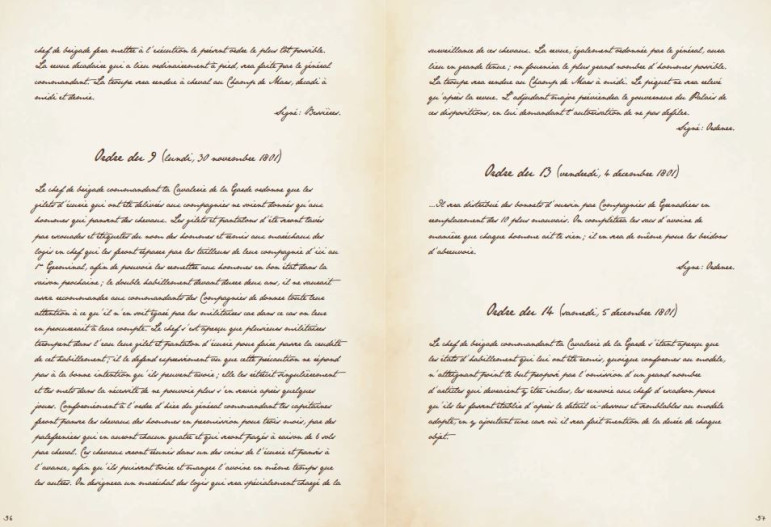 chef de brigade fera mettre à l'exécution le présent ordre le plus tôt possible.
La revue décadaire qui a lieu ordinairement à pied, sera faite par le général
commandant. La troupe sera rendue à cheval au Champ de Mars, décadi à
midi et demie.
Signé: Bessières.
Ordre du 9 (lundi, 30 novembre 1801)
Le chef de brigade commandant la Cavalerie de la Garde ordonne que les
gilets d'écurie qui ont été délivrés aux compagnies ne soient donnés qu'aux
hommes qui pansent des chevaux. Les gilets et pantalons d'été seront lavés
par escouades et étiquetés du nom des hommes et remis aux maréchaux des
logis en chef qui les feront réparer par les tailleurs de leur compagnie d'ici au
1er Germinal, afin de pouvoir les remettre aux hommes en bon état dans la
saison prochaine; le double habillement devant durer deux ans, il ne saurait
assez recommander aux commandants des Compagnies de donner toute leur
attention à ce qu'il n'en soit égaré par les militaires car dans ce cas on leur
en procurerait à leur compte. Le chef s'est aperçu que plusieurs militaires
trempent dans l'eau leur gilet et pantalon d'écurie pour faire passer la crudité
de cet habillement; il le défend expressément vu que cette précaution ne répond
pas à la bonne intention qu'ils peuvent avoir; elle les rétrécit singulièrement
et les mets dans la nécessité de ne pouvoir plus s'en servir après quelques
jours. Conformément à l'ordre d'hier du général commandant les capitaines
feront panser les chevaux des hommes en permission pour trois mois, par des
palefreniers qui en auront chacun quatre et qui seront payés à raison de 6 sols
par cheval. Ces chevaux seront réunis dans un des coins de l'écurie et pansés à
l'avance, afin qu'ils puissent boire et manger l'avoine en même temps que
les autres. On désignera un maréchal des logis qui sera spécialement chargé de la
36
surveillance de ces chevaux. La revue, également ordonnée par le général, aura
lieu en grande tenue; on fournira le plus grand nombre d'hommes possible.
La troupe sera rendue au Champ de Mars à midi. Le piquet ne sera relevé
qu'après la revue. L'adjudant major préviendra le gouverneur du Palais de
ces dispositions, en lui demandant l'autorisation de ne pas défiler.
Signé: Ordener.
Ordre du 13 (vendredi, 4 décembre 1801)
...Il sera distribué des bonnets d'oursin par Compagnies de Grenadiers en
remplacement des 10 plus mauvais. On complétera les sacs d'avoine de
manière que chaque homme ait le sien; il en sera de même pour les bidons
d'abreuvoir.
Signé: Ordener.
Ordre du 14 (samedi, 5 décembre 1801)
Le chef de brigade commandant la Cavalerie de la Garde s'étant aperçu que
les états d'habillement qui lui ont été remis, quoique conformes au modèle,
n'atteignant point le but proposé par l'omission d'un grand nombre
d'articles qui devraient y être inclus, les renvoie aux chefs d'escadron pour
qu'ils les fassent établir d'après le détail ci-dessous et semblables au modèle
adopté, en y ajoutant une case où il sera fait mention de la durée de chaque
objet.
37